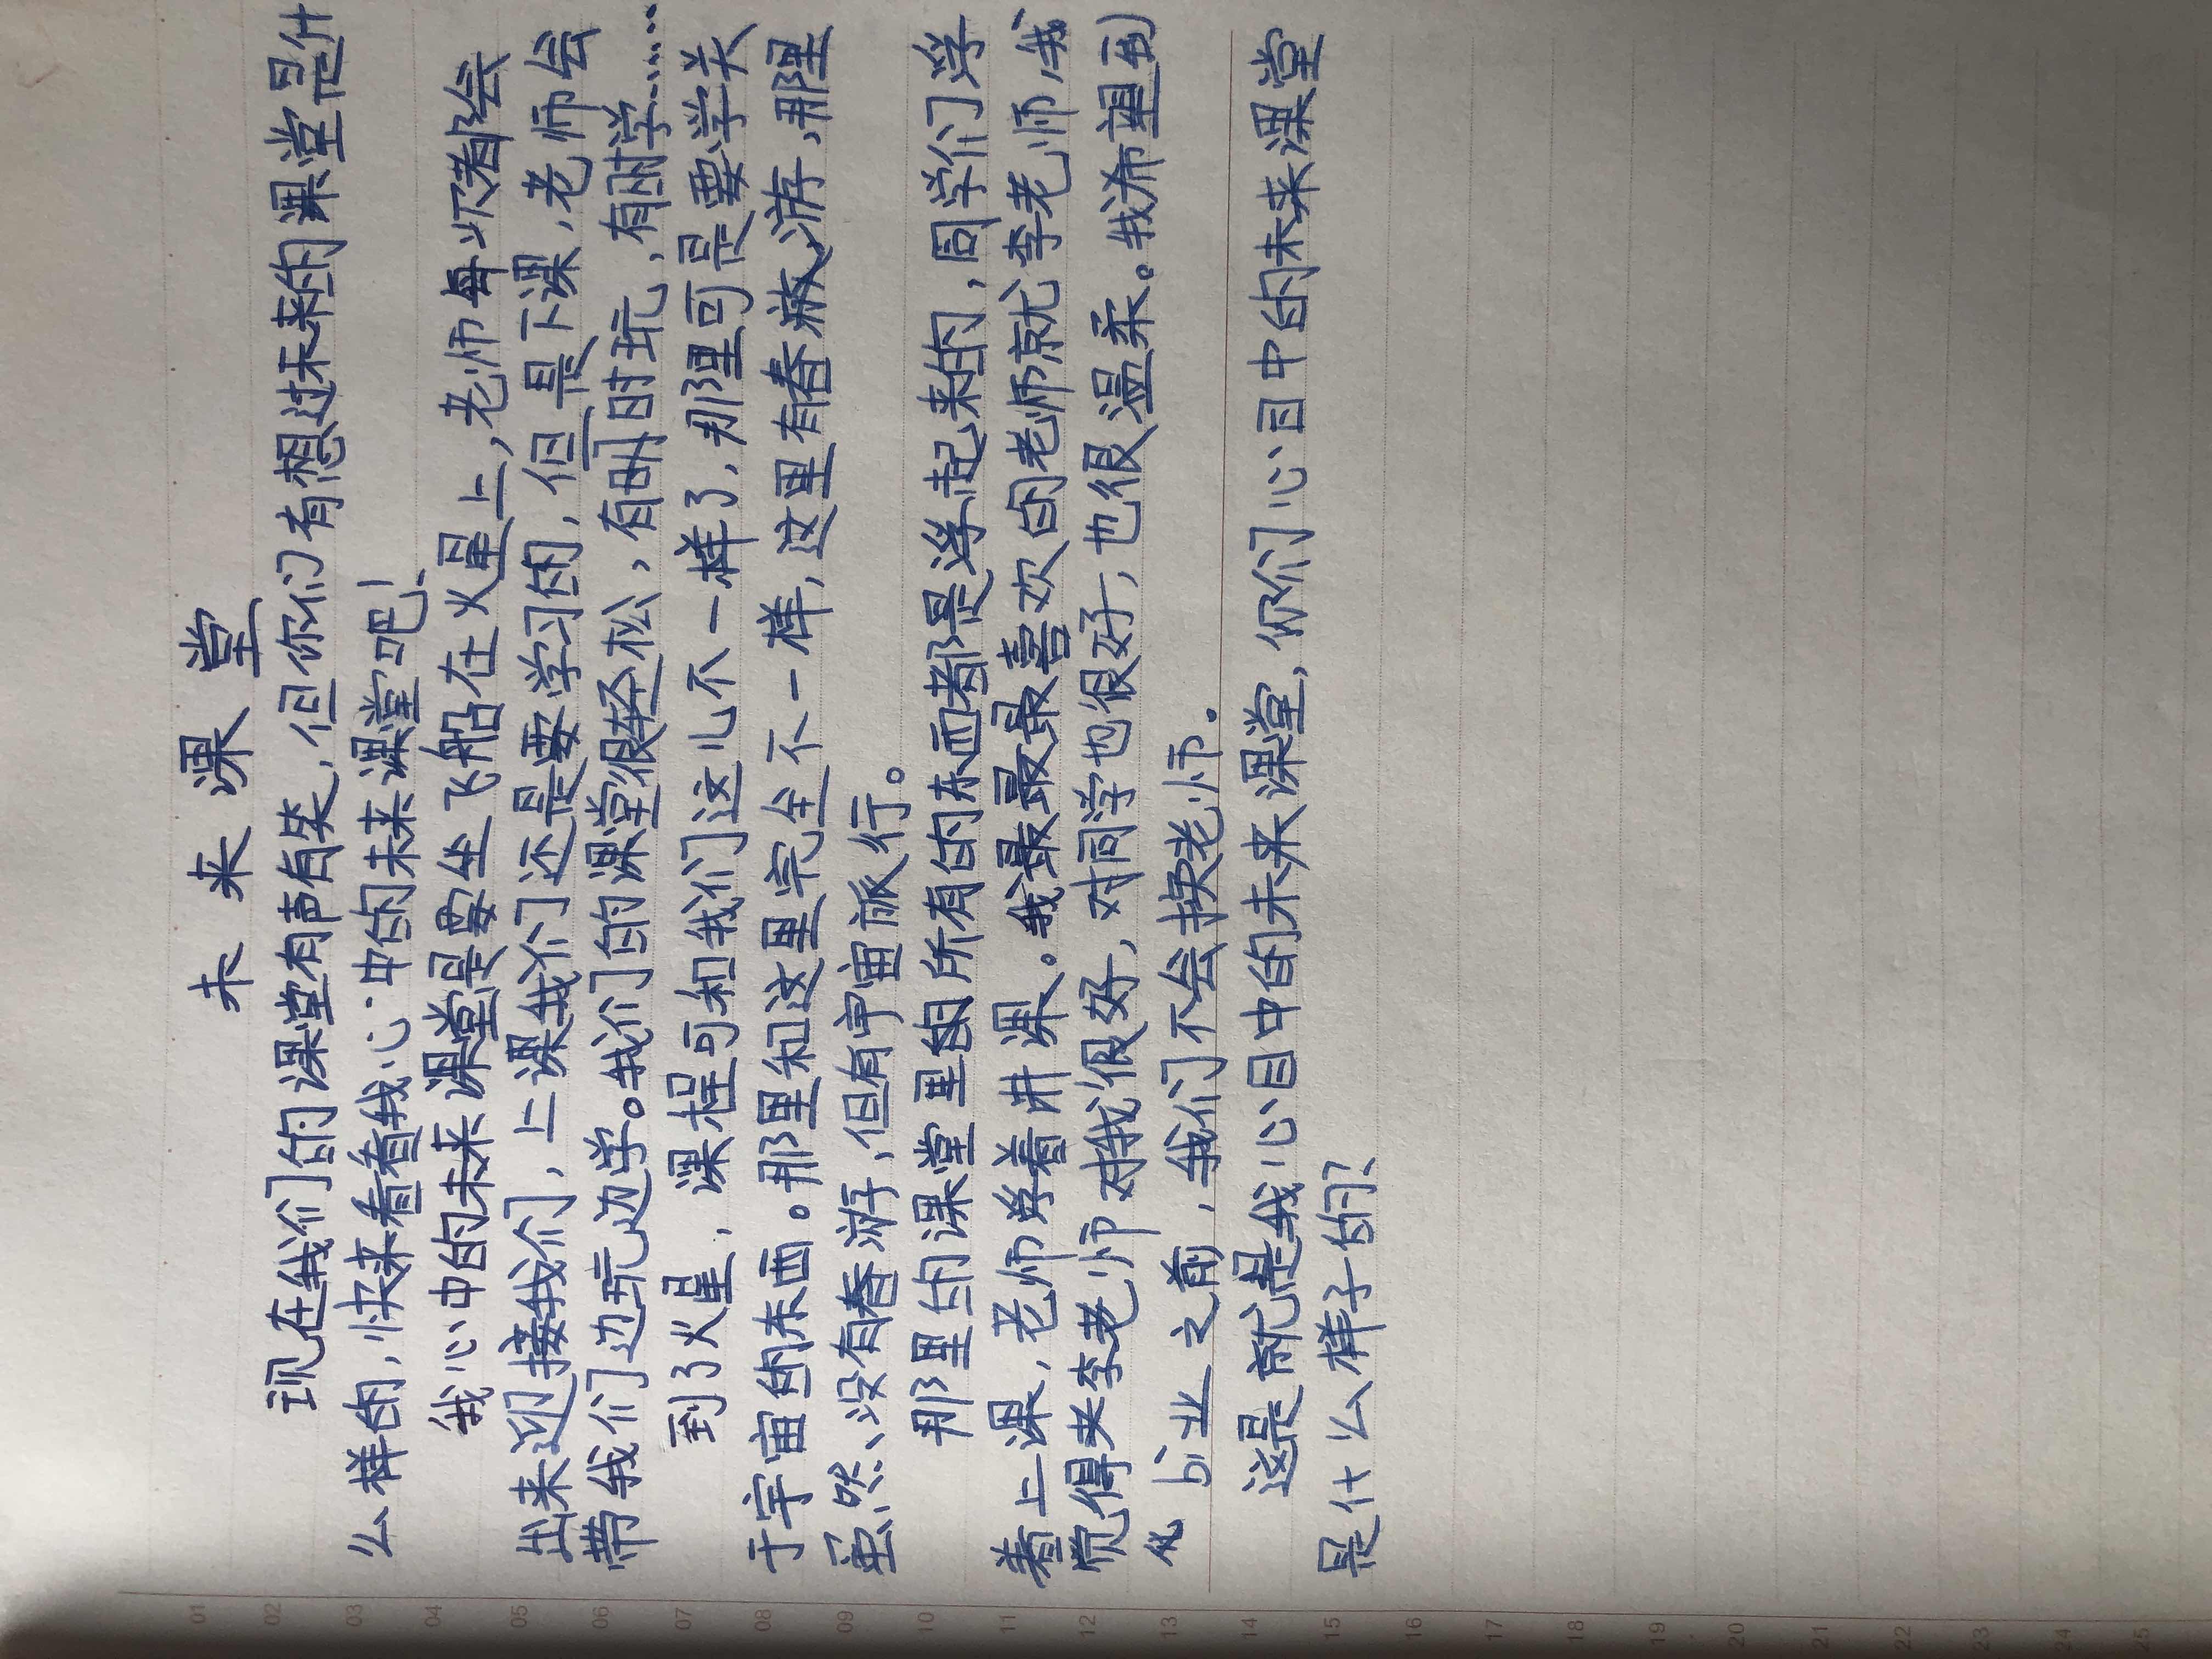 未来课堂
现在我们的课堂有声有笑,但你们有想过未来的课堂是什
么样的,快来看看我心中的未来课堂吧!
我心中的未来课堂是要坐飞船在火星上,老师每次都会
出来迎接我们,上课我们还是要学习的,但是下课,老师会
带我们边玩边学。我们的课堂很轻松,有时玩,有时学……
到了火星,课程可和我们这儿不一样了,那里可是要学关
于宇宙的东西。那里和这里完全不一样,这里有春游,那里
虽然没有春游,但有宇宙旅行。
那里的课堂里的所有的东西都是浮起来的,同学们浮
着上课,老师浮着讲课。我最最最最喜欢的老师就李老师,我
觉得来李老师对我很好,对同学也很好,也很温柔。我希望到
bi业之前,我们不会换老师。
这是就是我心目中的未来课堂,你们心目中的未来课堂
是什么样子的?
01
02
03
04
05
06
07
08
09
10
11
12
13
14
15
16
17
18
19
20
21
22
23
24
25